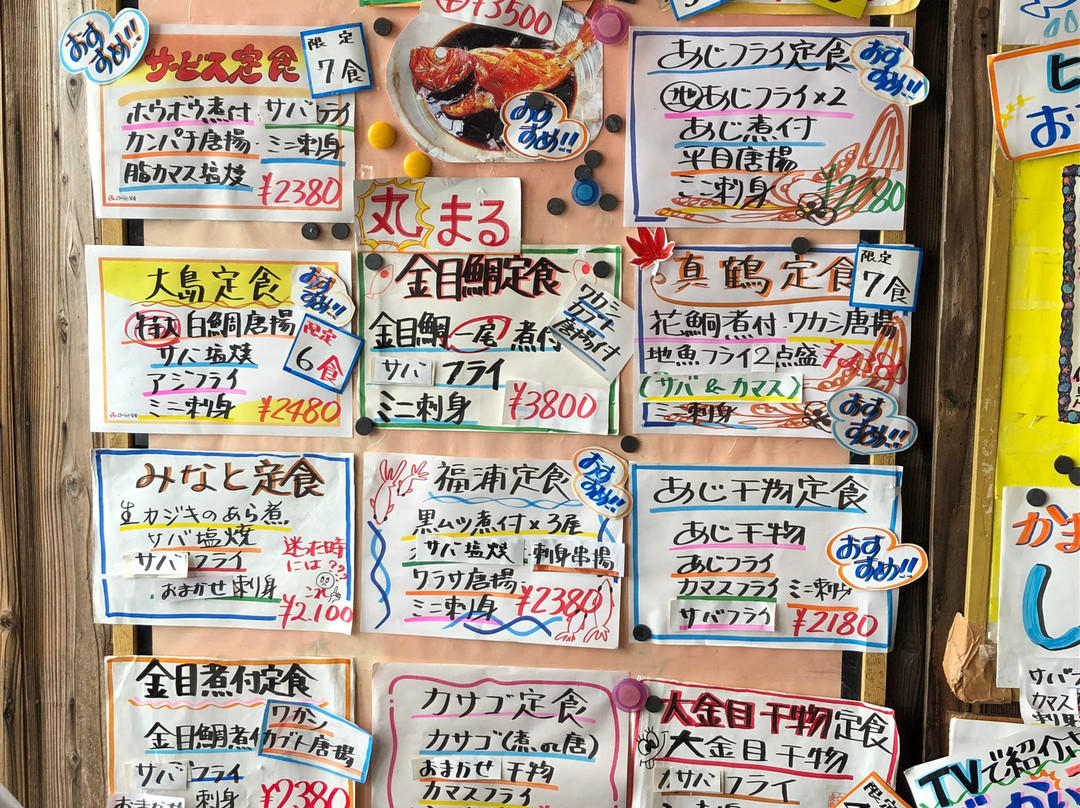 おすすめ!!
サービス定食
限定
7食
ホウボウ煮付 サバフライ
カンパチ唐揚・ミニ刺身
脂カマス塩焼
¥2380
¥3500
おすすめ!!
あじフライ定食
おすすめ!!
地あじフライ×2
あじ煮付
平目唐揚
ミニ刺身
¥2280
大島定食
おすすめ!!
特大白鯛唐揚
サバ塩焼
限定
6食
アジフライ
ミニ刺身
¥2480
丸まる
金目鯛定食
金目鯛一尾煮付
ワカシ
カブト
唐揚付
サバフライ
ミニ刺身
¥3800
真鶴定食
限定
7食
花鯛煮付・ワカシ唐揚
地魚フライ2点盛
(サバ&カマス)
ミニ刺身
おすすめ!!
みなと定食
生カジキのあら煮
サバ塩焼
サバフライ
おまかせ刺身
迷た時
には???
これ
¥2.100
福浦定食
おすすめ!!
黒ムツ煮付×3尾
サバ塩焼・刺身串揚
ワラサ唐揚
ミニ刺身
¥2380
あじ干物定食
あじ干物
あじフライ
カマスフライ ミニ刺身
サバフライ
¥2180
おすすめ!!
金目煮付定食
金目鯛煮付
ワカシ
カブト唐揚
サバフライ
おまかせ刺身
¥2380
カサゴ定食
カサゴ(煮or唐)
おまかせ干物
カマスフライ
大金目干物定食
大金目干物
サバフライ
限定
お
かま
し
サバフ
カマス
刺身
TVで紹介